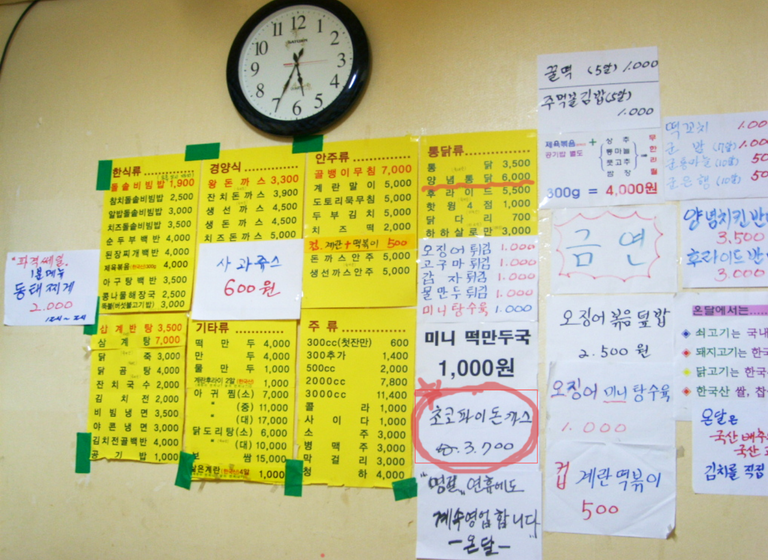 한식류
돌솥비빔밥 1,900
참치돌솥비빔밥 2,500
알밥돌솥비빔밥 3,000
치즈돌솥비빔밥 3,500
순두부백반 4,000
된장찌개백반 4,000
제육볶음 4,000
아구탕백반 3,500
콩나물해장국 2,500
3,000
경양식
왕돈까스 3,300
잔치돈까스 3,900
생선까스 4,500
생돈까스 4,500
치즈돈까스 5,000
안주류
골뱅이무침 7,000
계란말이 5,000
도토리묵무침 5,000
두부김치 5,000
치즈떡 2,000
컵 계란+떡볶이 500
돈까스안주 5,000
생선까스안주 5,000
통닭류
통닭 3,500
양념통닭 6,000
후라이드 5,500
핫윙4점 3,000
닭다리 700
하하살로만 5,000
오징어튀김 1.000
고구마튀김 1.000
감자튀김 1.000
물만두튀김 1.000
미니탕수육 1.000
1인메뉴
동태찌게
2.000
사과쥬스
600원
삼계반탕 3,500
삼계탕 7,000
닭죽 3,000
닭곰탕 4,000
잔치국수 2,000
김치전 2,000
비빔냉면 3,500
물냉면 3,500
김치전골백반 4,000
공기밥 1,000
기타류
떡만두 4,000
만두 4,000
물만두 1,000
1,000
아귀찜(소) 7,000
" (중) 11,000
" (대) 17,000
닭도리탕(소) 6,000
" (대) 10,000
보쌈 15,000
1,000
주류
300cc(첫잔만) 600
300추가 1,400
500cc 2,000
2000cc 7,800
3000cc 11,400
콜라 1,000
사이다 1,000
소주 3,000
병맥주 3,000
막걸리 3,000
청하 4,000
미니 떡만두국
1,000원
초코파이돈까스
3.700
"명절"연휴에도
계속영업합니다
-온달-
꿀떡 (5알) 1.000
주먹불김밥(5알)
1.000
제육볶음 +
공기밥 별도
상추
통마늘
풋고추
쌈장
무한리필
300g = 4,000원
금연
오징어 볶음덮밥
2.500원
오징어 미니탕수육
1.000
컵 계란떡볶이
500
떡꼬치 1.00
양념치킨반
3.500
후라이드반
3.000
온달에서는
쇠고기는 국내
돼지고기는 한국
닭고기는 한국
한국산 쌀, 찹
온달은
국산 배추
국산
김치를 직접